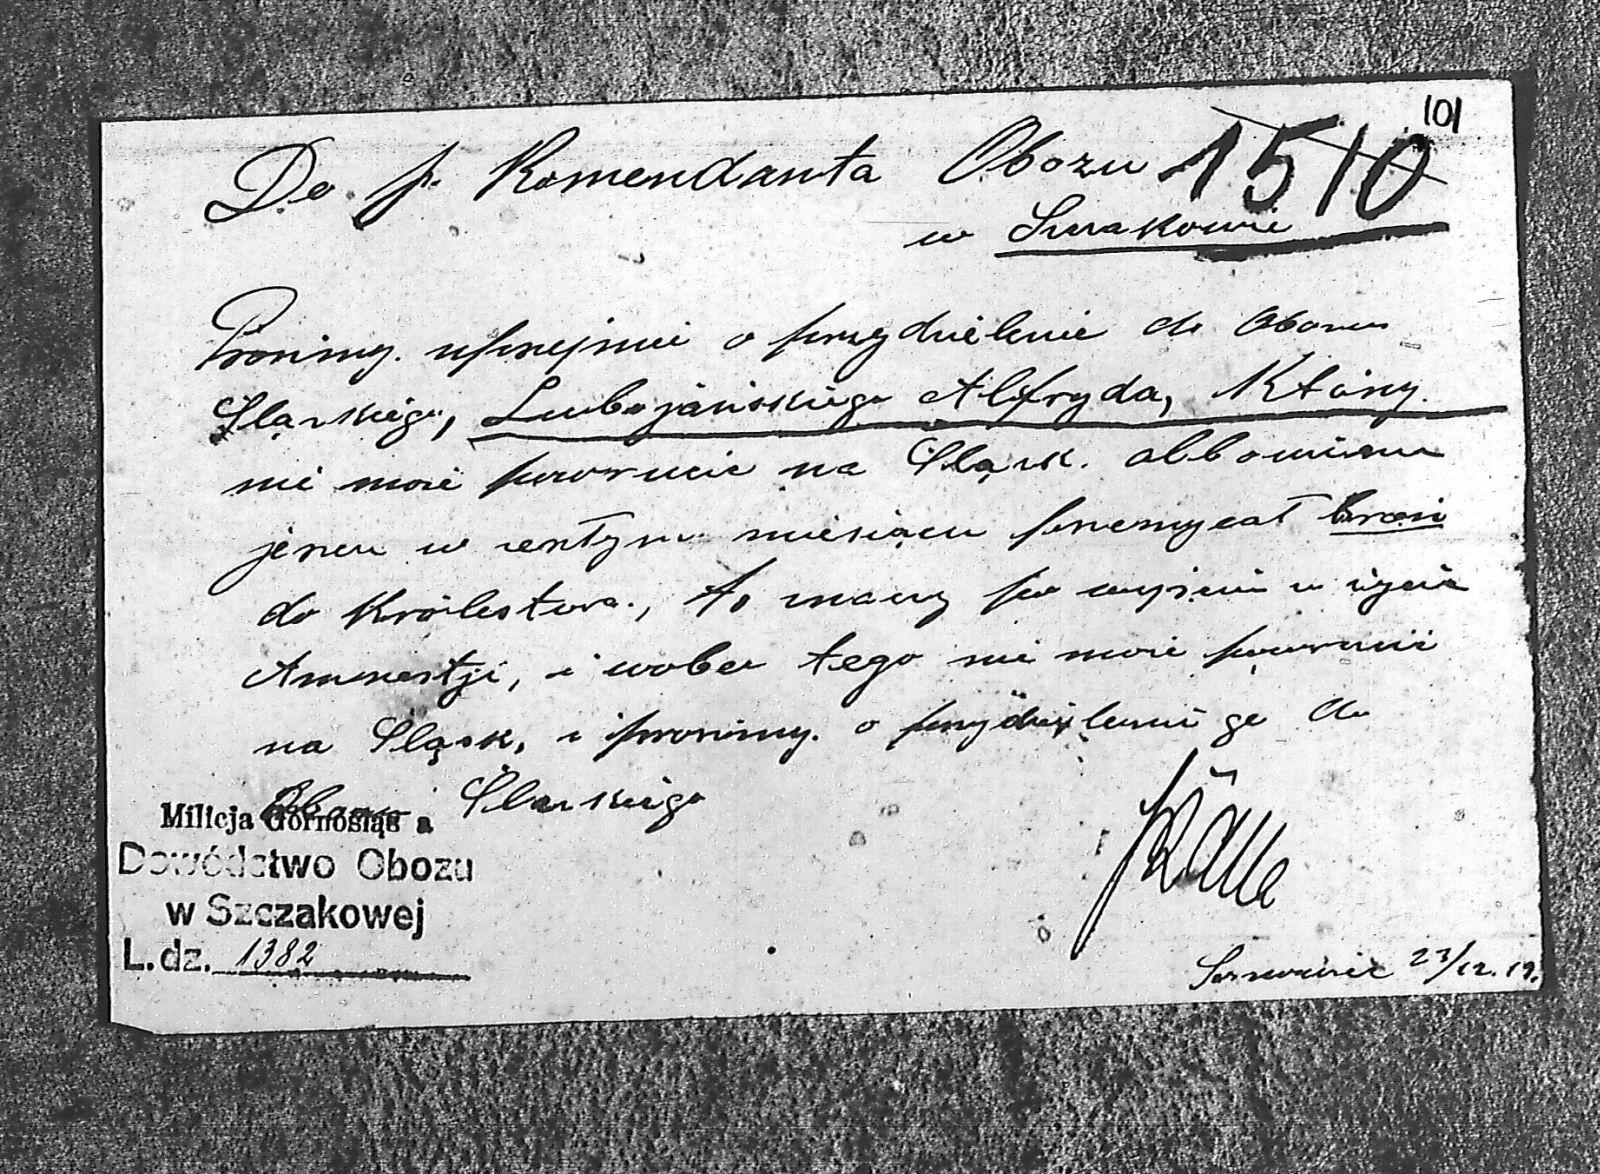 101
Do p. Komendanta Obozu 1510
w
Prosimy. uprzejmie o przydzielenie do Obozu
Śląskiego, Lubojańskiego Alfryda, Który.
nie może powrucic na Śląsk. albowiem
jeszcze w zeszłym miesiącu przemycał broń
do Królestwa., to znaczy po wyjściu w życie
Amnestji, i wobec tego nie może powrucić
na Śląsk, i prosimy. o przydzielenie go do
Obozu Śląskiego
Milicja Górnośląs a
Dowództwo Obozu
w Szczakowej
L. dz. 1382
Sosnowiec 23/12.19.